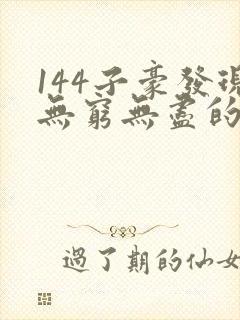 144子豪發現
無窮無盡的
過了期的仙女